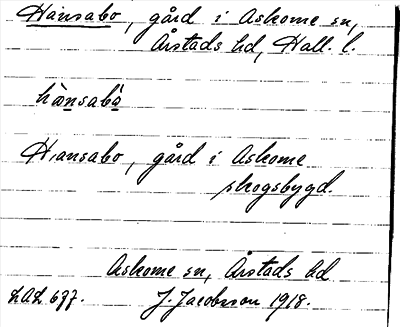 Hansabo, gård i Askome sn,
Årstads hd, Hall. l.
hànsabó
Hansabo, gård i Askome
skogsbygd.
Askome sn, Årstads hd
LAL 677. J. Jacobsson 1918.